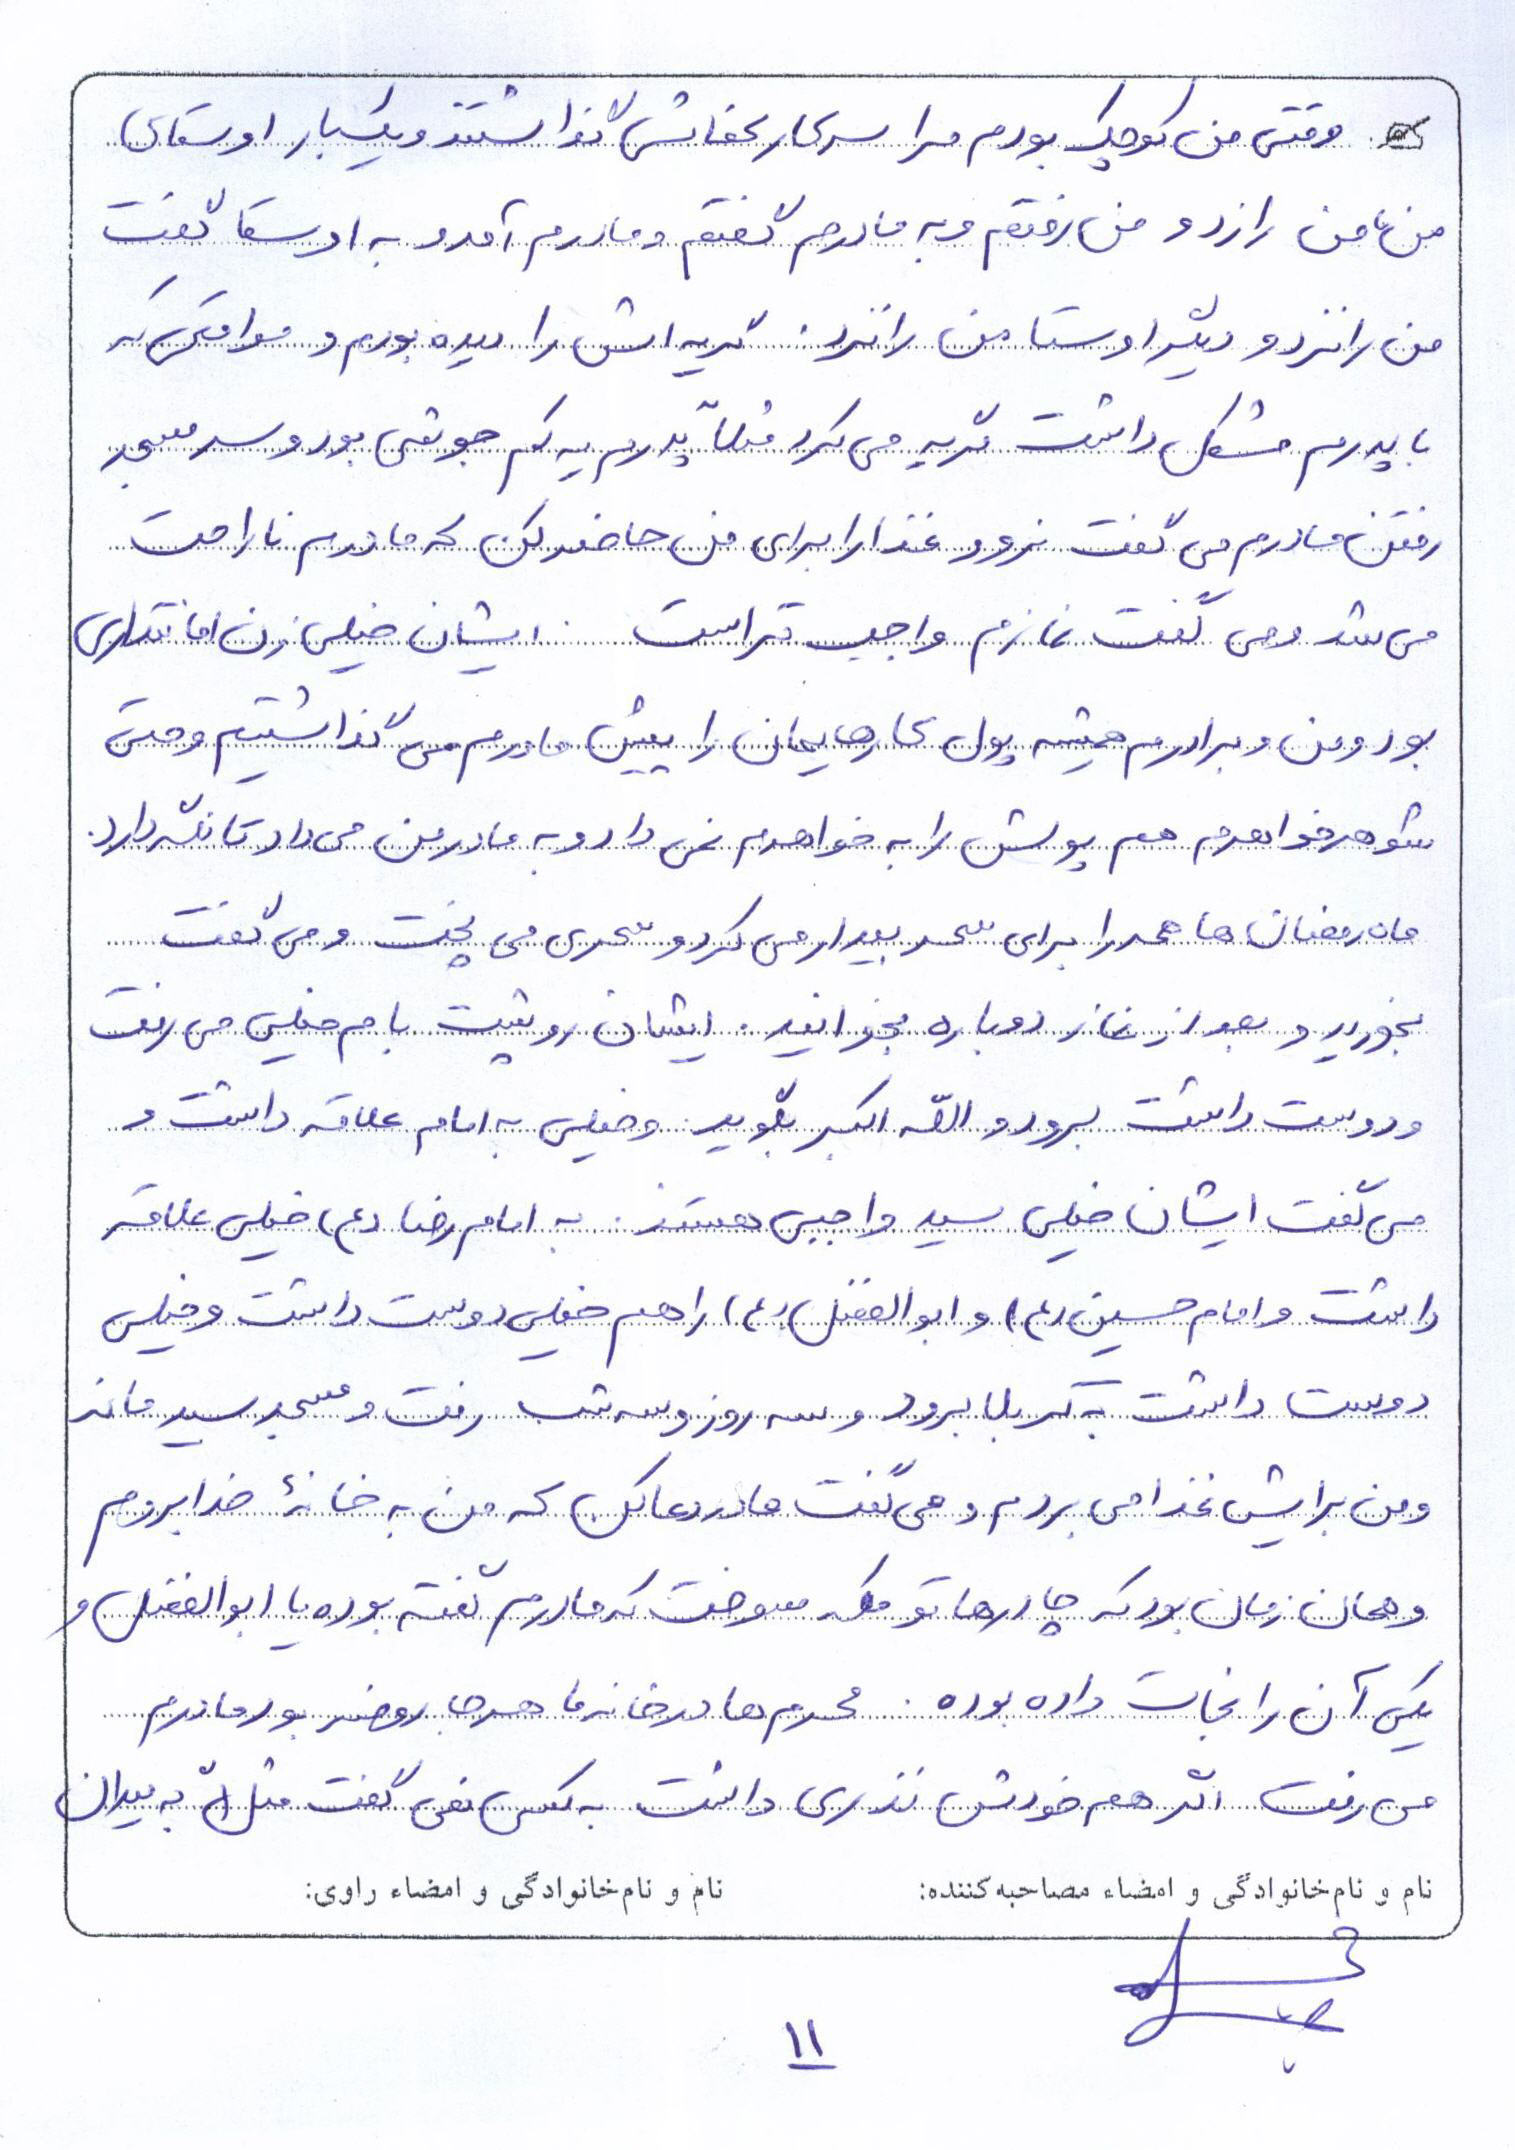 وقتی من کوچک بودم مرا سر کار کفاشی گذاشتند و یکبار اوستای
من من را زد و من رفتم و به مادرم گفتم و مادرم آمد و به اوستا گفت
من را نزد و دیگر اوستا من را نزد. گریه اش را دیده بودم و مواقعی که
با پدرم مشکل داشت گریه می کرد مثلاً پدرم یه کم جوشی بود و سر مسجد
رفتن مادرم می گفت نرو و غذا را برای من حاضر کن که مادرم ناراحت
می شد و می گفت نمازم واجب تر است. ایشان خیلی زن امانتداری
بود و من و برادرم همیشه پول کارهایمان را پیش مادرم می گذاشتیم و حتی
شوهر خواهرم هم پولش را به خواهرم نمی داد و به مادر من می داد تا نگه دارد.
ماه رمضان ها همه را برای سحر بیدار می کرد و سحری می پخت و می گفت
بخورید و بعد از نماز دوباره بخوابید. ایشان رو پشت بام خیلی می رفت
و دوست داشت برود و الله اکبر بگوید. و خیلی به امام علاقه داشت و
می گفت ایشان خیلی سید واجبی هستند. به امام رضا (ع) خیلی علاقه
داشت و امام حسین (ع) و ابوالفضل (ع) را هم خیلی دوست داشت و خیلی
دوست داشت به کربلا برود و سه روز و سه شب رفت و مسجد سید ماند
و من برایش غذا می بردم و می گفت مادر دعا کن که من به خانهٔ خدا بروم
و همان زمان بود که چادرها تو مکه سوخت که مادرم گفته بوده یا ابوالفضل و
یکی آن را نجات داده بوده. محرم ها در خانه ما هر جا روضه بود مادرم
می رفت اگر هم خودش نذری داشت به کسی نمی گفت مثلاً به میدان
نام و نام خانوادگی و امضاء مصاحبه کننده: نام و نام خانوادگی و امضاء راوی:
۱۱